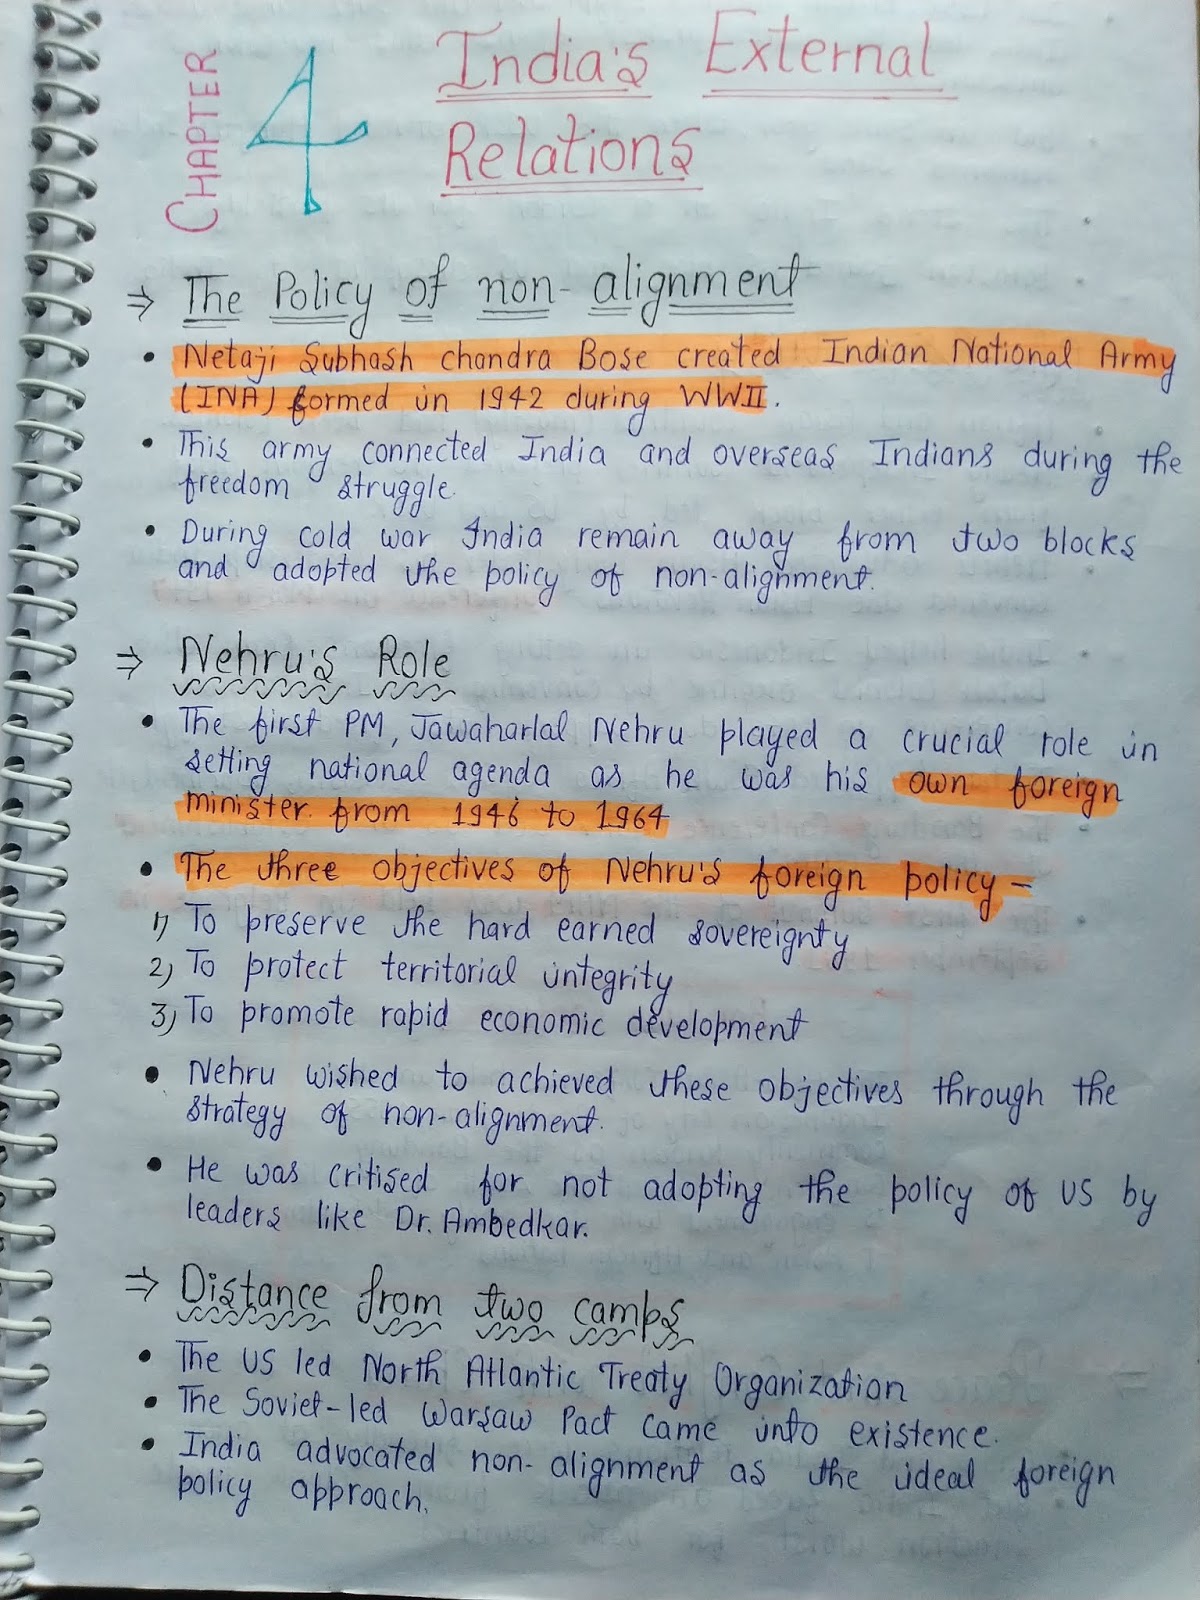 CHAPTER
4
India's External
Relations
⇒ The Policy of non-alignment
• Netaji Subhash chandra Bose created Indian National Army
(INA) formed in 1942 during WWII.
• This army connected India and overseas Indians during the
freedom struggle.
• During cold war India remain away from two blocks
and adopted the policy of non-alignment.
⇒ Nehru's Role
• The first PM, Jawaharlal Nehru played a crucial role in
setting national agenda as he was his own foreign
minister from 1946 to 1964
• The three objectives of Nehru's foreign policy –
1) To preserve the hard earned sovereignty
2) To protect territorial integrity
3) To promote rapid economic development
• Nehru wished to achieved these objectives through the
strategy of non-alignment.
• He was critised for not adopting the policy of US by
leaders like Dr. Ambedkar.
⇒ Distance from two camps
• The US led North Atlantic Treaty Organization
• The Soviet-led Warsaw Pact came into existence.
• India advocated non-alignment as the ideal foreign
policy approach.